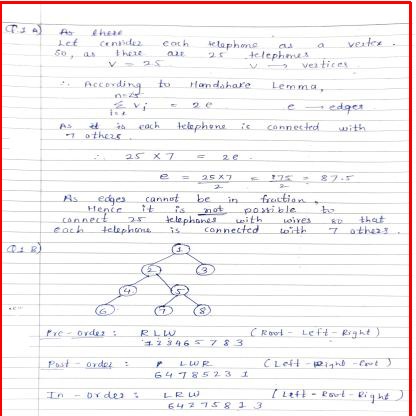 Q.1 A) As there
Let consider each telephone as a vertex.
So, as there are 25 telephones
V = 25 V → vertices
∴ According to Handshare Lemma,
n=25
Σ Vi = 2e e → edges
i=1
As it is each telephone is connected with
7 others.
∴ 25 × 7 = 2e
e = 25×7 / 2 = 175 / 2 = 87.5
As edges cannot be in fraction,
Hence it is not possible to
connect 25 telephones with wires so that
each telephone is connected with 7 others.
Q.1 B)
1
2 3
4 5
6 7 8
Pre-order : RLW (Root - Left - Right)
1 2 3 4 6 5 7 8 3
Post-order : LWR (Left - Right - Root)
6 4 7 8 5 2 3 1
In-order : LRW (Left - Root - Right)
6 4 2 7 5 8 1 3